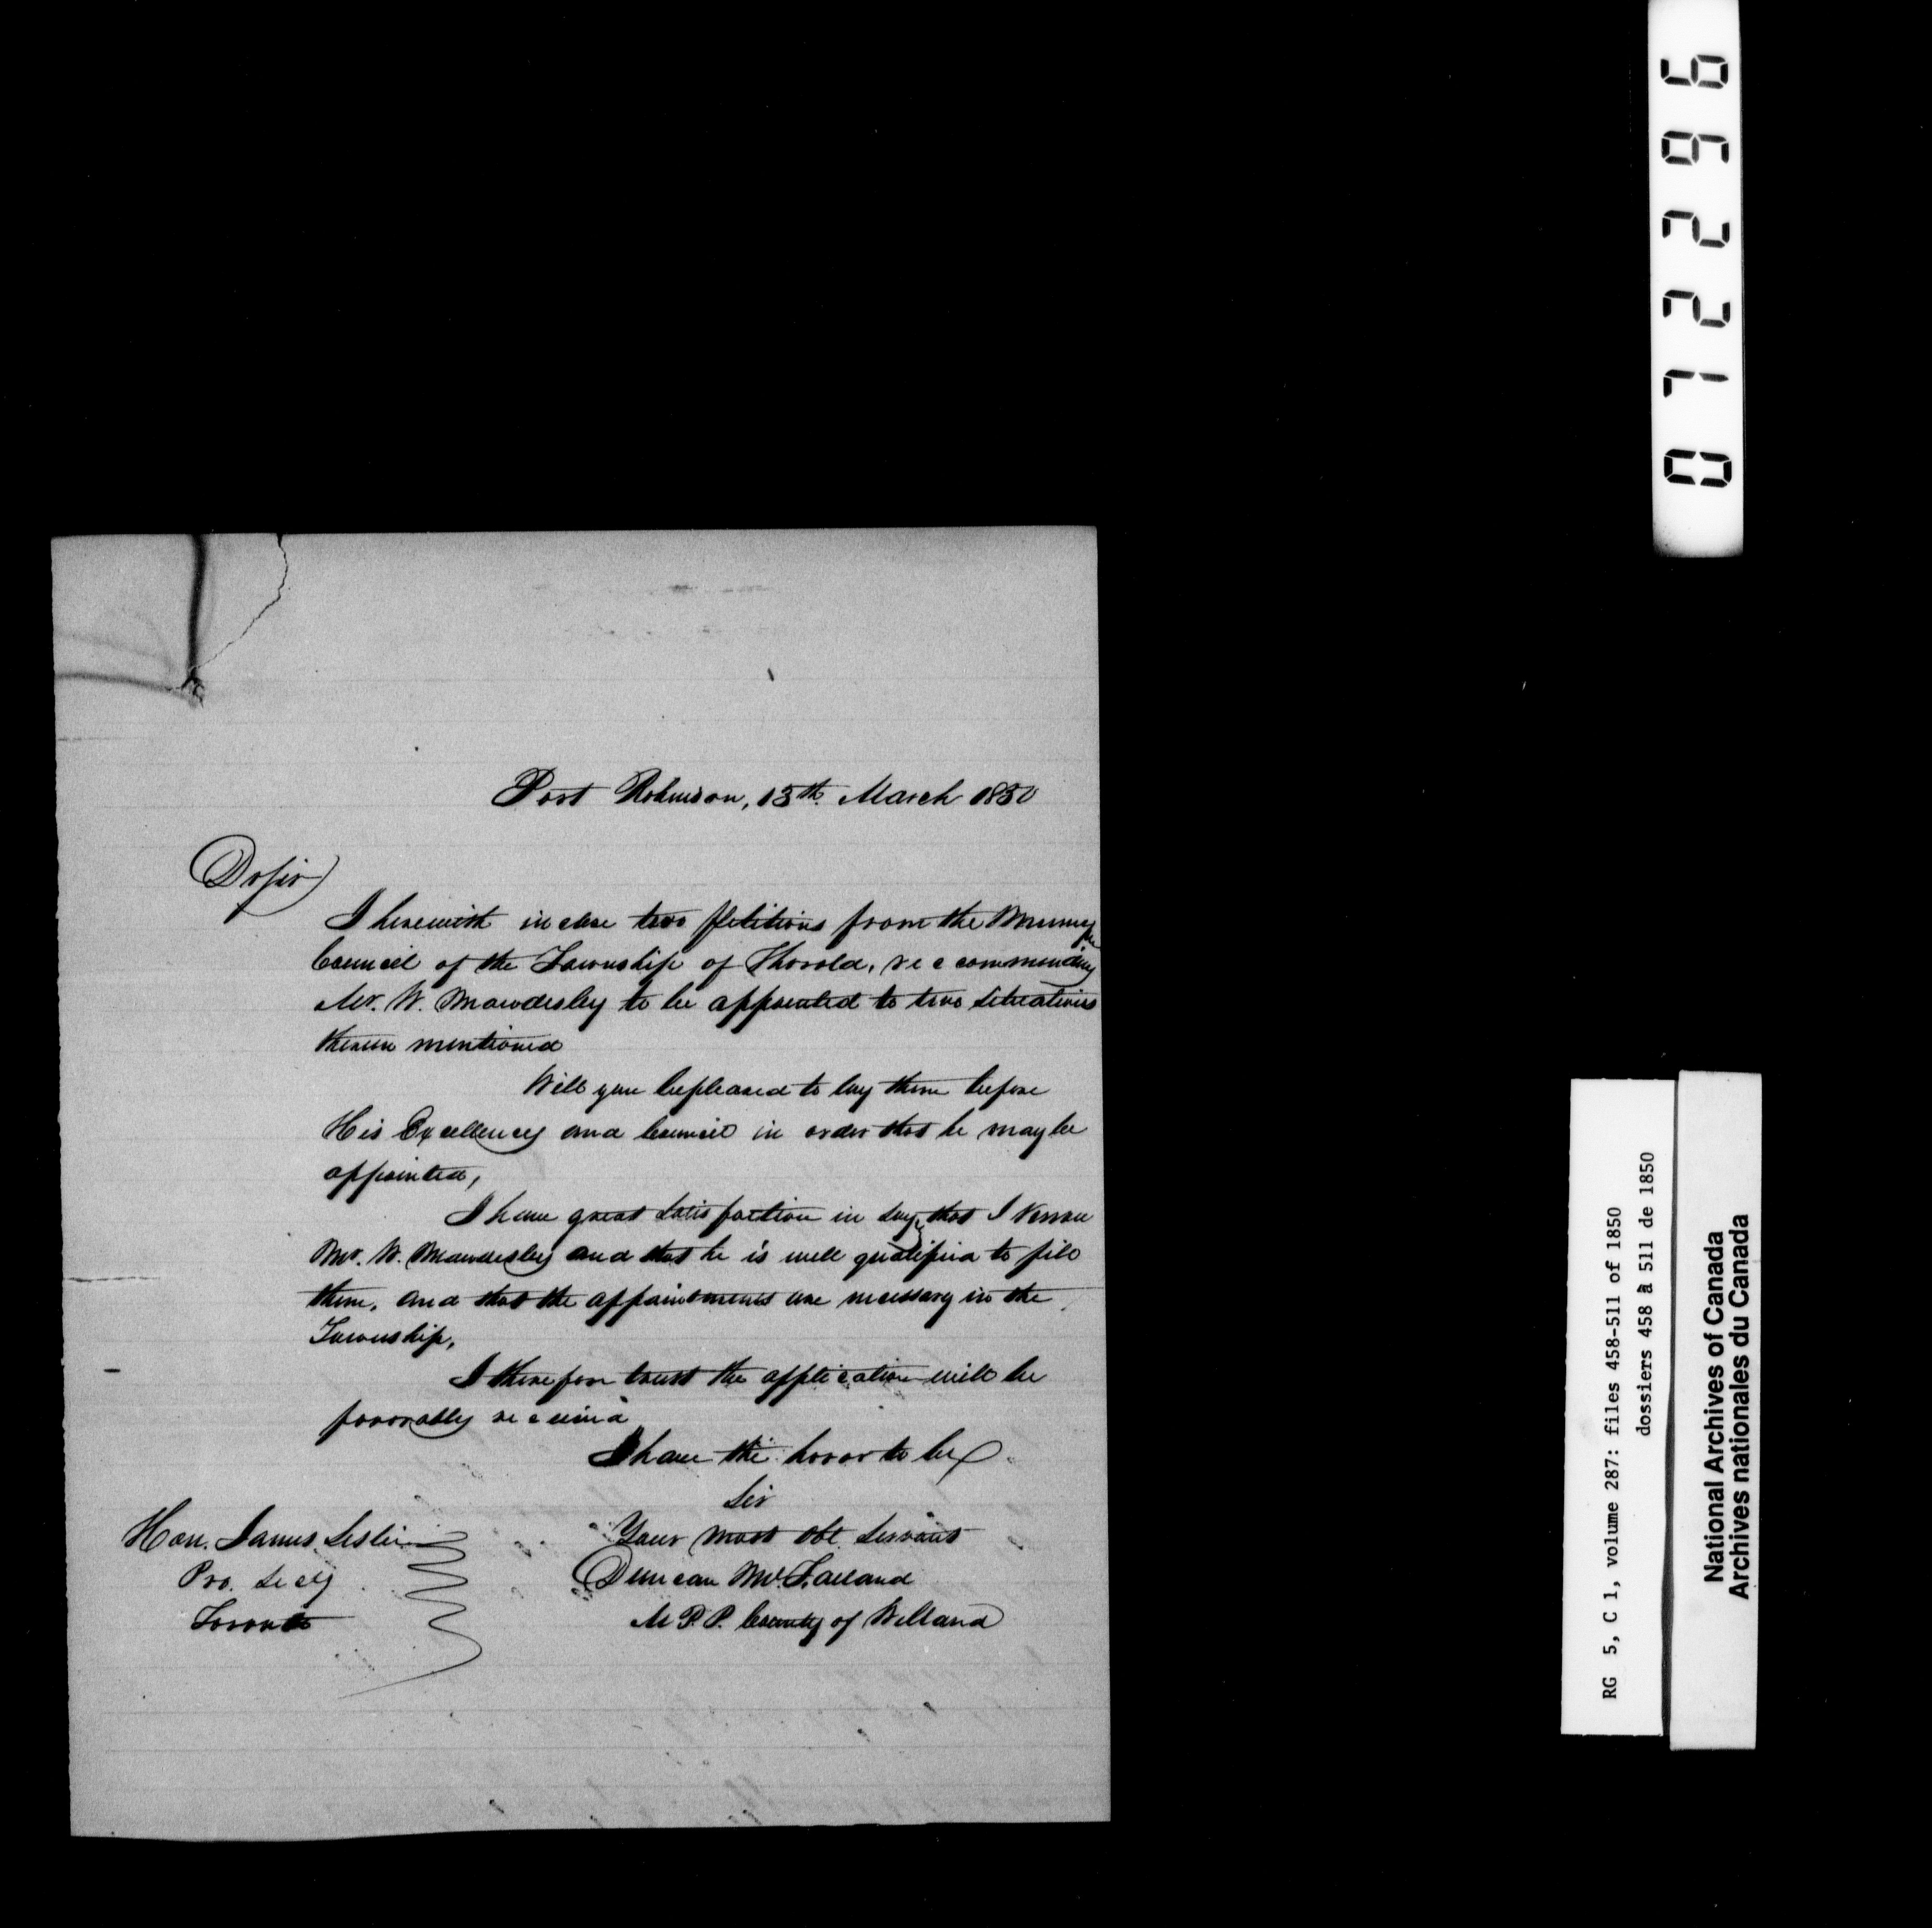 Port Robinson, 13th March 1850
Dr Sir
I herewith inclose two Petitions from the
Council of the Township of Thorold, reccommending
Mr. W. Mawdesley to be appointed to two situations
therein mentioned
Will you be pleased to lay them before
His Excellency and Council in order that he may be
appointed,
I have great satisfaction in sayg that I know
Mr. W. Mawdesley and that he is well qualified to fill
them, and that the appointments are necessary in the
Township,
I therefore trust the application will be
favorably received
I have the honor to be
Sir
Your most obt Servant
Duncan McFarland
M P. P. County of Welland
Hon. James Leslie
Pro. Secy
Toronto
072296
RG 5, C 1, volume 287: files 458-511 of 1850
dossiers 458 à 511 de 1850
National Archives of Canada
Archives nationales du Canada